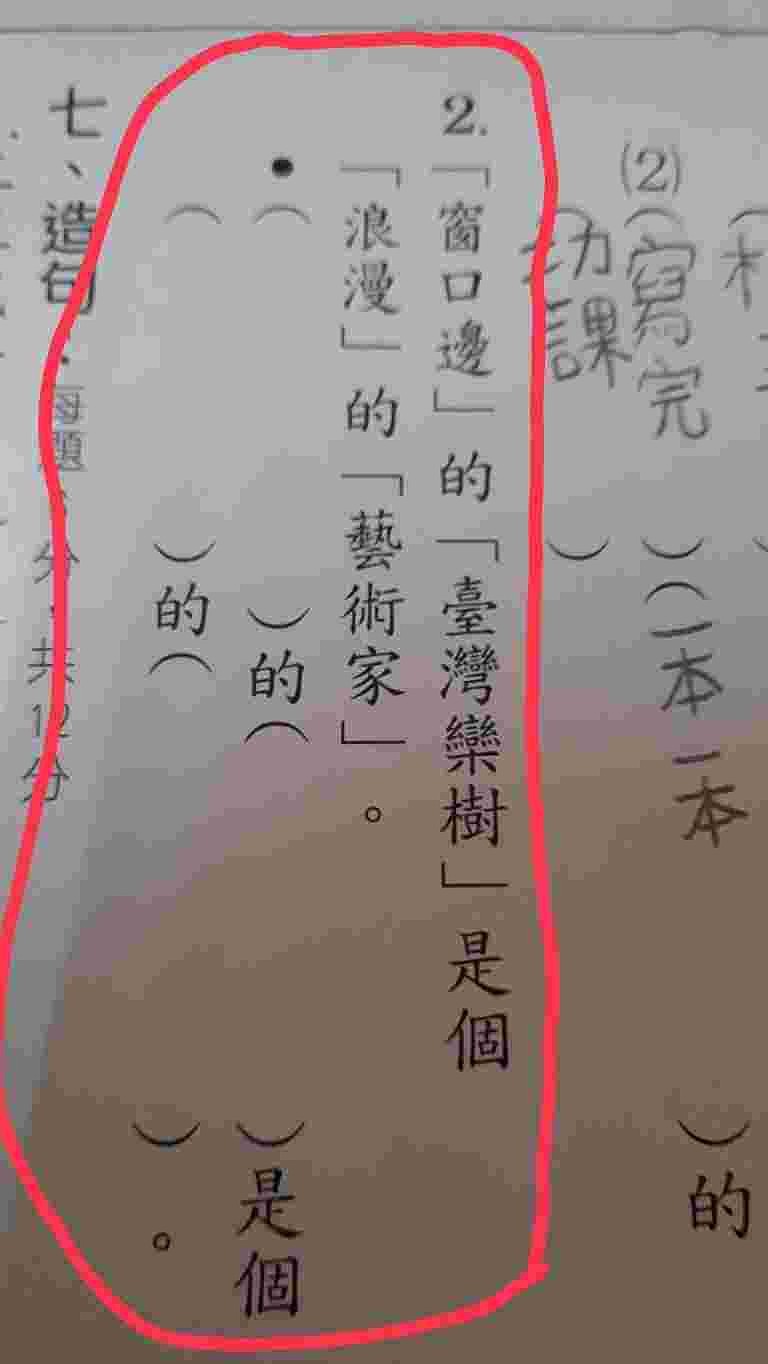 (2)（寫完）（一本一本）的
（功課）
2.「窗口邊」的「臺灣欒樹」是個
「浪漫」的「藝術家」。
•（）的（）是個
（）的（）。
七、造句：每題 分，共12分